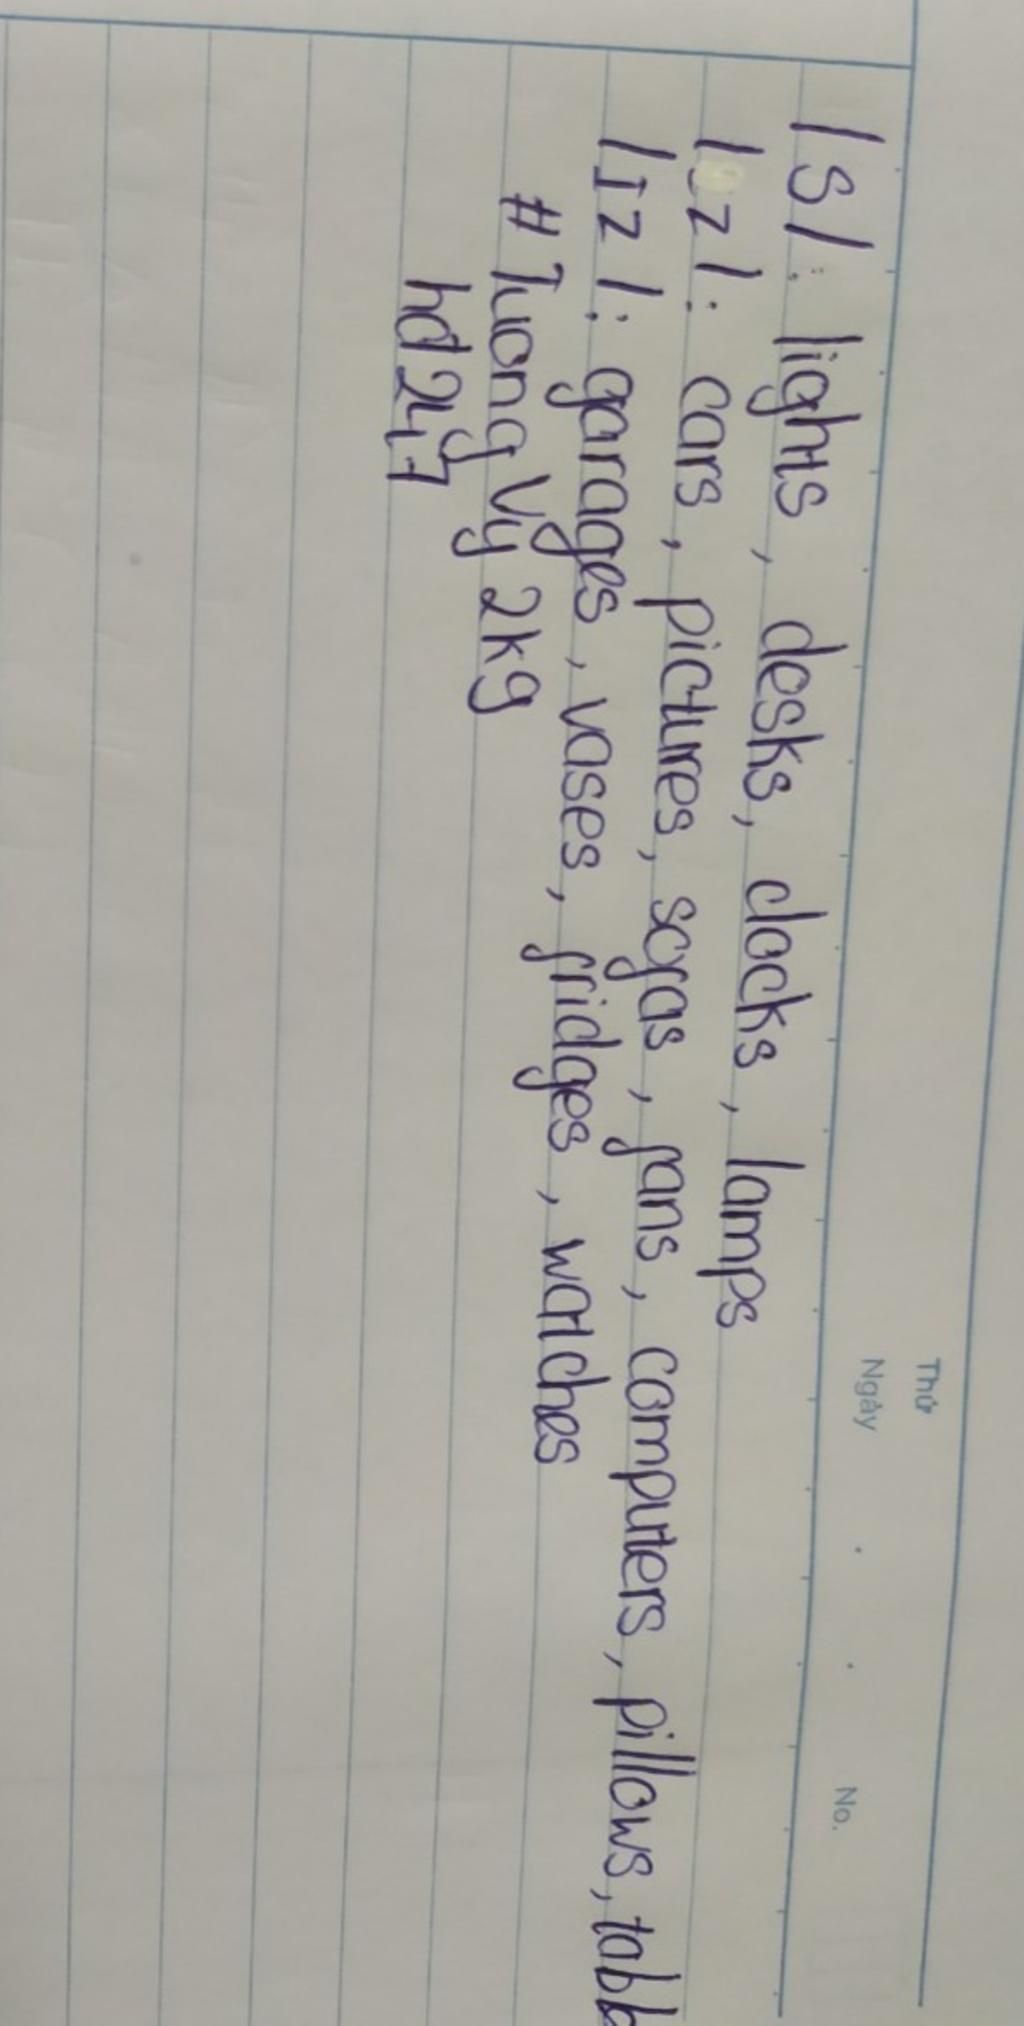 Thứ
Ngày No.
/s/: lights, desks, clocks, lamps
/z/: cars, pictures, sofas, fans, computers, pillows,
/ɪz/: garages, vases, fridges, watches
# Tuong Vy 2kg
hd247